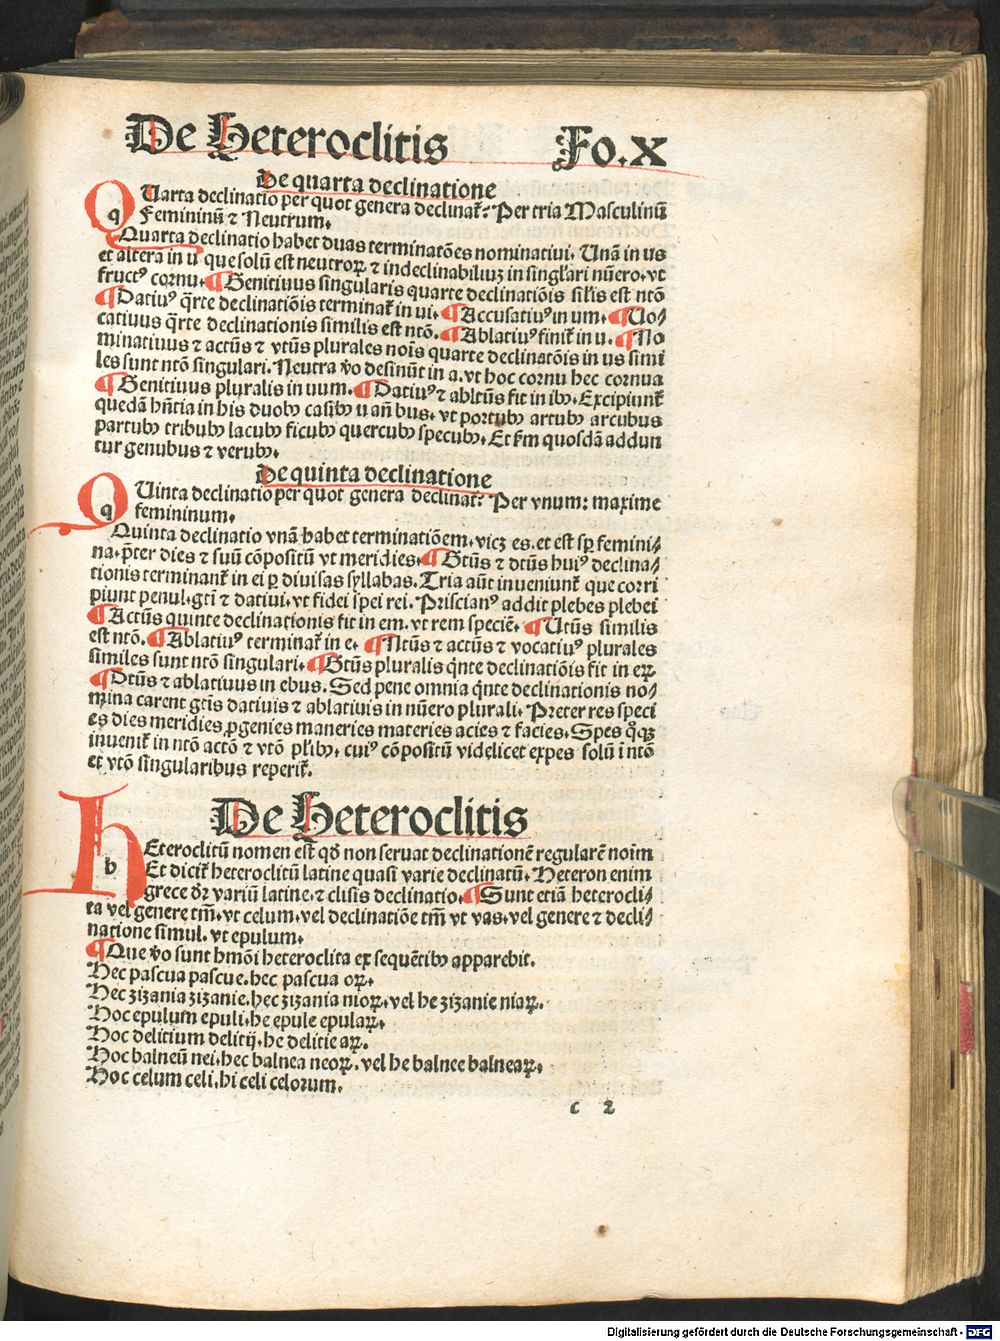 De Heteroclitis Fo.X
De quarta declinatione
QUarta declinatio per quot genera declinat̉? Per tria Masculinū
Femininū ⁊ Neutrum.
Quarta declinatio habet duas terminatōes nominativi. Unā in us
et altera in u que solū est neutroꝝ ⁊ indeclinabiliuꝫ in singl'ari nūero. vt
fructꝰ cornu. ¶ Genitivus singularis quarte declinatiōis sil'is est ntō
¶ Datiuꝰ q̄rte declinatiōis terminat̉ in ui. ¶ Accusatiuꝰ in um. ¶ Uo⸗
catiuus q̄rte declinationis similis est ntō. ¶ Ablatiuꝰ finit̉ in u. ¶ No
minatiuus ⁊ actūs ⁊ vtūs plurales noīs quarte declinatōis in us simi
les sunt ntō singulari. Neutra v̄o desinūt in a. vt hoc cornu hec cornua
¶ Genitiuus pluralis in uum. ¶ Datiuꝰ ⁊ abltūs fit in ibꝫ. Excipiunt̉
quedā hn̄tia in his duobꝫ casibꝫ u an̄ bus. vt portubꝫ artubꝫ arcubus
partubꝫ tribubꝫ lacubꝫ ficubꝫ quercubꝫ specubꝫ. Et ẜm quosdā addun
tur genubus ⁊ verubꝫ.
De quinta declinatione
QUinta declinatio per quot genera declinat̉? Per vnum: maxime
femininum.
Quinta declinatio vnā habet terminatiōem. vicꝫ es. et est sp̄ femini⸗
na. p̄ter dies ⁊ suū cōpositū vt meridies. ¶ Gtūs ⁊ dtūs huiꝰ declina⸗
tionis terminant̉ in ei ꝑ diuisas syllabas. Tria aūt inueniunt̉ que corri
piunt penul. gtī ⁊ datiui. vt fidei spei rei. Priscianꝰ addit plebes plebei
¶ Actūs quinte declinationis fit in em. vt rem speciē. ¶ Utūs similis
est ntō. ¶ Ablatiuꝰ terminat̉ in e. ¶ Ntūs ⁊ actūs ⁊ vocatiuꝰ plurales
similes sunt ntō singulari. ¶ Gtūs pluralis q̄nte declinatiōis fit in eꝝ.
¶ Dtūs ⁊ ablatiuus in ebus. Sed pene omnia q̄nte declinationis no⸗
mina carent gtīs datiuis ⁊ ablatiuis in nūero plurali. Preter res speci
es dies meridies ꝓgenies maneries materies acies ⁊ facies. Spes qͦqꝫ
inuenit̉ in ntō actō ⁊ vtō pl'ibꝫ. cuiꝰ cōpositū videlicet expes solū ī ntō
et vtō singularibus reperit̉.
De Heteroclitis
HEteroclitū nomen est qd̄ non seruat declinationē regularē noīm
Et dicit̉ heteroclitū latine quasi varie declinatū. Heteron enim
grece dr̄ variū latine. ⁊ clisis declinatio. ¶ Sunt etiā heterocli⸗
ta vel genere tm̄. vt celum. vel declinatiōe tm̄ vt vas. vel genere ⁊ decli⸗
natione simul. vt epulum.
¶ Que v̄o sunt hmōi heteroclita ex sequētibꝫ apparebit.
Hec pascua pascue. hec pascua oꝝ.
Hec zizania zizanie. hec zizania nioꝝ. vel he zizanie niaꝝ.
Hoc epulum epuli. he epule epulaꝝ.
Hoc delitium delitij. he delitie aꝝ.
Hoc balneū nei. hec balnea neoꝝ. vel he balnee balneaꝝ.
Hoc celum celi. hi celi celorum.
c 2
Digitalisierung gefördert durch die Deutsche Forschungsgemeinschaft - DFG